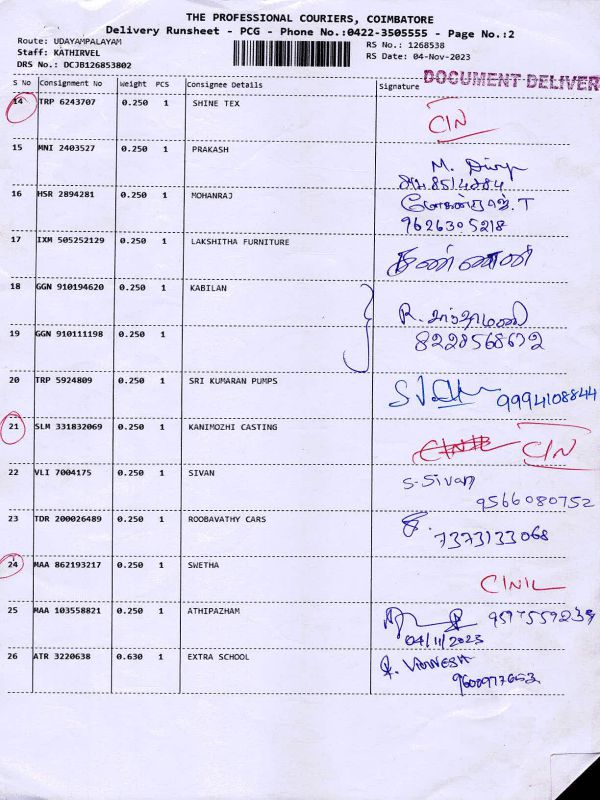 THE PROFESSIONAL COURIERS, COIMBATORE
Delivery Runsheet - PCG - Phone No.:0422-3505555 - Page No.:2
Route: UDAYAMPALAYAM
Staff: KATHIRVEL
DRS No.: DCJB126853802
RS No.: 1268538
RS Date: 04-Nov-2023
S No Consignment No Weight PCS Consignee Details Signature
DOCUMENT DELIVER
14 TRP 6243707 0.250 1 SHINE TEX CIN
15 MNI 2403527 0.250 1 PRAKASH M.
16 HSR 2894281 0.250 1 MOHANRAJ மோகன்ராஜ்.T
9626305218
17 IXM 505252129 0.250 1 LAKSHITHA FURNITURE
18 GGN 910194620 0.250 1 KABILAN R.
19 GGN 910111198 0.250 1 8220568672
20 TRP 5924809 0.250 1 SRI KUMARAN PUMPS 9994108844
21 SLM 331832069 0.250 1 KANIMOZHI CASTING CIN
22 VLI 7004175 0.250 1 SIVAN S-Sivan
9566080752
23 TDR 200026489 0.250 1 ROOBAVATHY CARS 7373133068
24 MAA 862193217 0.250 1 SWETHA CINIL
25 MAA 103558821 0.250 1 ATHIPAZHAM
04/11/2023
26 ATR 3220638 0.630 1 EXTRA SCHOOL